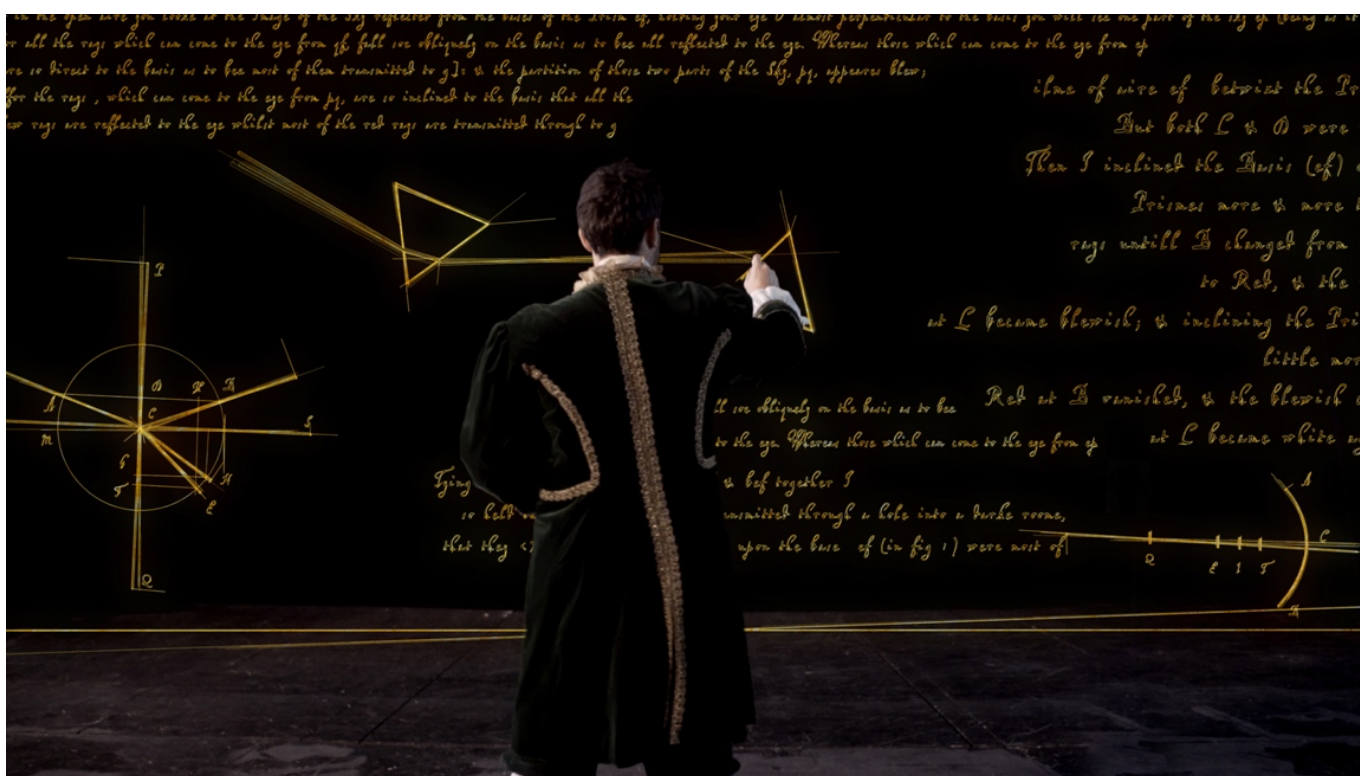 in the open aire you looke at the Image of the Sky reflected from the basis of the Prism ef, holding your eye O almost perpendicular to the basis you will see one part of the sky ep (being as it
all the rays which can come to the eye from qf fall soe obliquely on the basis as to bee all reflected to the eye. Whereas those which can come to the eye from ep
are so direct to the basis as to bee most of them transmitted to g]: & the partition of those two parts of the Sky, pq, appeares blew;
for the rays , which can come to the eye from pq, are so inclined to the basis that all the
blew rays are reflected to the eye whilst most of the red rays are transmitted through to g
filme of aire ef betwixt the Pr
But both C & D were
Then I inclined the Basis (ef)
Prismes more & more
rays untill B changed from
to Red, & the
at C became blewish; & inclining the Pri
little mor
Red at B vanished, & the blewish
at C became white
ll soe obliquely on the basis as to bee
to the eye. Whereas those which can come to the eye from ep
Tying & bef together I
so held transmitted through a hole into a darke roome,
that they upon the base ef (in fig 1) were most of
P
D
B
A
C
m
G
T
H
E
Q
A
C
Q
E
T
B